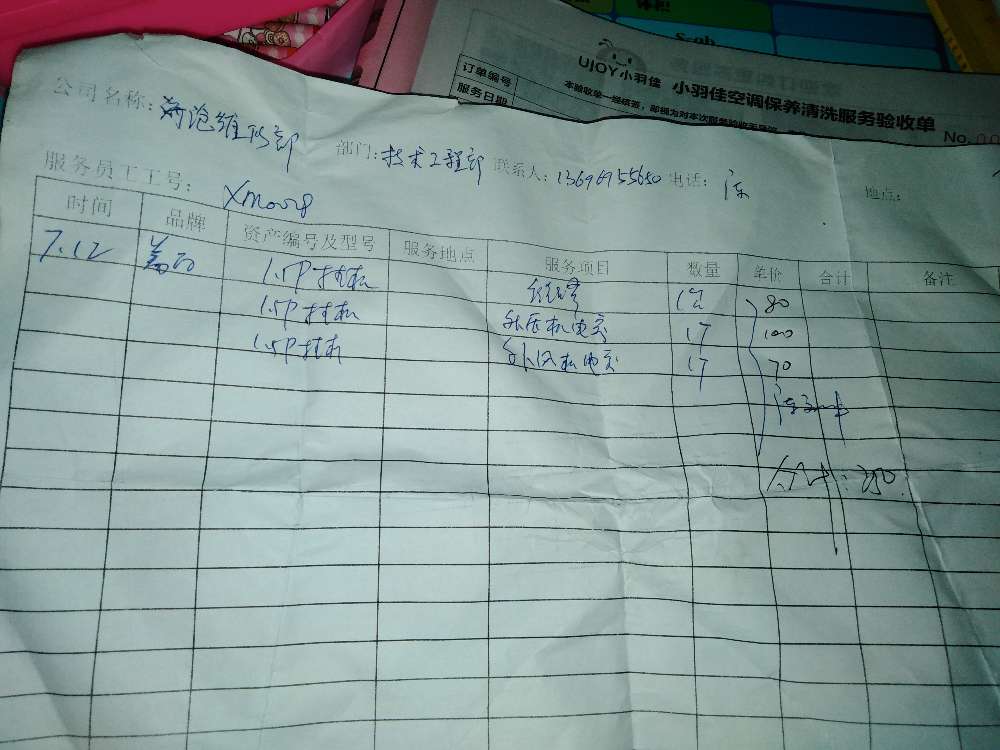 UJOY小羽佳 小羽佳空调保养清洗服务验收单
订单编号
服务日期
No.
公司名称: 维修部
部门: 技术工程部 联系人: 13696955650 电话: 陈 地点:
服务员工工号: Xm008
时间 品牌 资产编号及型号 服务地点 服务项目 数量 单价 合计 备注
7.12 1.5P挂机 80
1.5P挂机 外压机电容 1个 100
1.5P挂机 外风机电容 1个 70
合计: 250